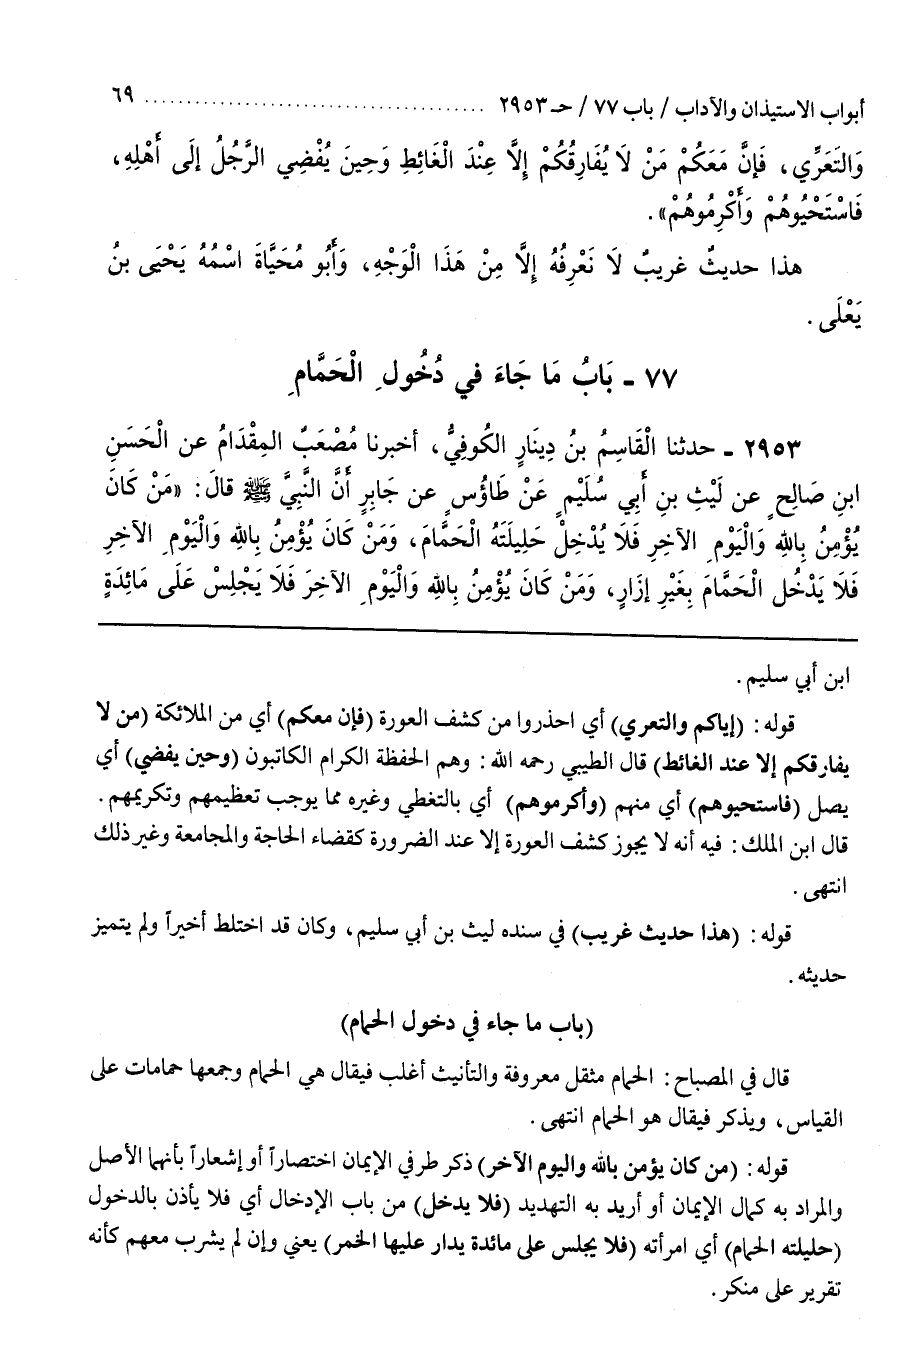 أبواب الاستيذان والآداب / باب ٧٧ / حـ ٢٩٥٣ ........................................ ٦٩
وَالتَعَرِّي، فَإِنَّ مَعَكُمْ مَنْ لَا يُفَارِقُكُمْ إِلَّا عِنْدَ الْغَائِطِ وَحِينَ يُفْضِي الرَّجُلُ إِلَى أَهْلِهِ،
فَاسْتَحْيُوهُمْ وَأَكْرِمُوهُمْ».
هذا حديثٌ غريبٌ لَا نَعْرِفُهُ إِلَّا مِنْ هَذَا الْوَجْهِ، وَأَبُو مُحَيَّاةَ اسْمُهُ يَحْيَى بنُ
يَعْلَى.
٧٧ - بَابُ مَا جَاءَ في دُخُولِ الْحَمَّامِ
٢٩٥٣ - حدثنا الْقَاسِمُ بنُ دِينَارٍ الكُوفِيُّ، أخبرنا مُصْعَبُ المِقْدَامُ عن الْحَسَنِ
ابنِ صَالِحٍ عن لَيْثِ بنِ أَبِي سُلَيْمٍ عَنْ طَاوُسٍ عن جَابِرٍ أَنَّ النَّبِيَّ ﷺ قالَ: «مَنْ كَانَ
يُؤْمِنُ بِاللهِ وَالْيَوْمِ الآخِرِ فَلَا يُدْخِلْ حَلِيلَتَهُ الْحَمَّامَ، وَمَنْ كَانَ يُؤْمِنُ بِاللهِ وَالْيَوْمِ الآخِرِ
فَلَا يَدْخُلِ الْحَمَّامَ بِغَيْرِ إزَارٍ، وَمَنْ كَانَ يُؤْمِنُ بِاللهِ وَالْيَوْمِ الآخِرَ فَلَا يَجْلِسْ عَلَى مَائِدَةٍ
ابن أبي سليم.
قوله: (إياكم والتعري) أي احذروا من كشف العورة (فإن معكم) أي من الملائكة (من لا
يفارقكم إلا عند الغائط) قال الطيبي رحمه الله: وهم الحفظة الكرام الكاتبون (وحين يفضي) أي
يصل (فاستحيوهم) أي منهم (وأكرموهم) أي بالتغطي وغيره مما يوجب تعظيمهم وتكريمهم.
قال ابن الملك: فيه أنه لا يجوز كشف العورة إلا عند الضرورة كقضاء الحاجة والمجامعة وغير ذلك
انتهى.
قوله: (هذا حديث غريب) في سنده ليث بن أبي سليم، وكان قد اختلط أخيراً ولم يتميز
حديثه.
(باب ما جاء في دخول الحمام)
قال في المصباح: الحمام مثقل معروفة والتأنيث أغلب فيقال هي الحمام وجمعها حمامات على
القياس، ويذكر فيقال هو الحمام انتهى.
قوله: (من كان يؤمن بالله واليوم الآخر) ذكر طرفي الإيمان اختصاراً أو إشعاراً بأنهما الأصل
والمراد به كمال الإيمان أو أريد به التهديد (فلا يدخل) من باب الإدخال أي فلا يأذن بالدخول
(حليلته الحمام) أي امرأته (فلا يجلس على مائدة يدار عليها الخمر) يعني وإن لم يشرب معهم كأنه
تقرير على منكر.